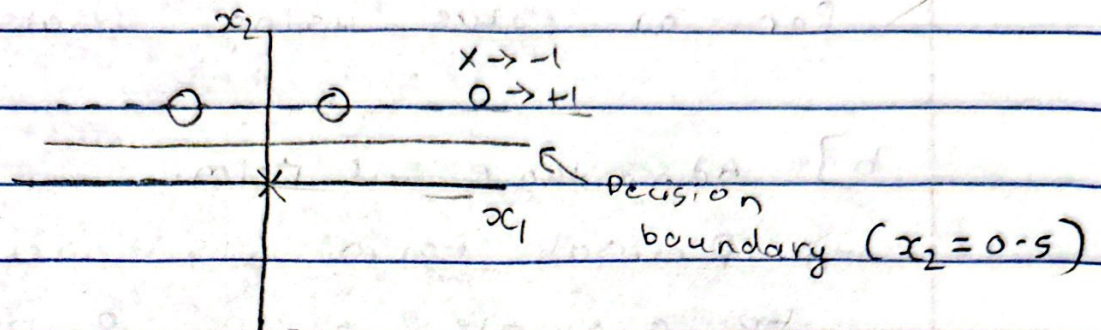 x₂
x → -1
O → +1
x₁
Decision
boundary (x₂ = 0.5)